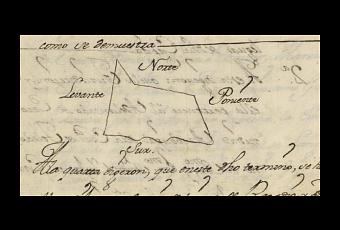 como se demuestra
Norte
Levante
Poniente
Sur.
A la quarta dixeron, que en este dho termino, se h